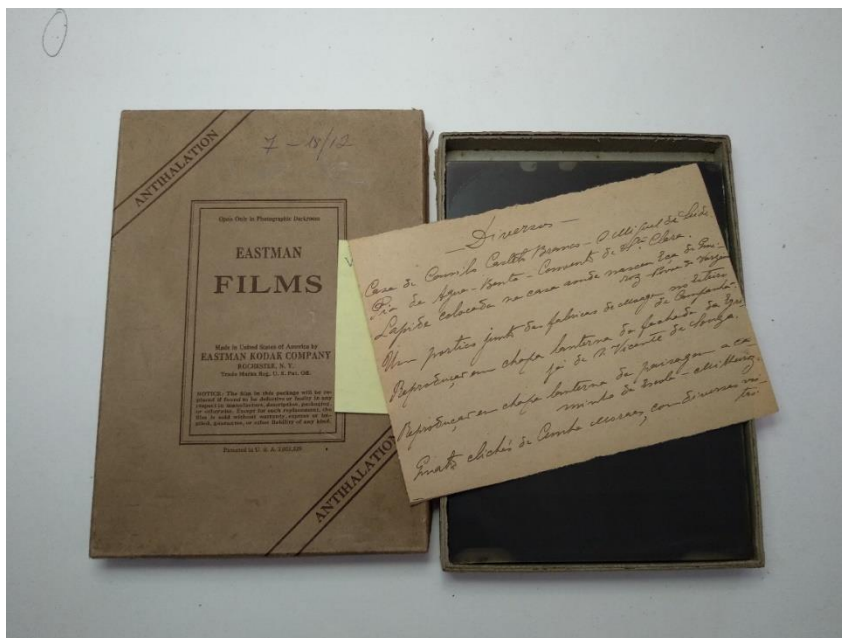 ANTIHALATION
7 - 18/12
Open Only in Photographic Darkroom
EASTMAN
FILMS
Made in United States of America by
EASTMAN KODAK COMPANY
ROCHESTER, N. Y.
Trade Marks Reg. U. S. Pat. Off.
NOTICE: The film in this package will be re-
placed if found to be defective or faulty in any
respect in manufacture, description, packaging,
or otherwise. Except for such replacement, the
film is sold without warranty, express or im-
plied, guarantee, or other liability of any kind.
Patented in U. S. A.
ANTIHALATION
— Diversos —
Casa de Camilo Castelo Branco - S. Miguel de Seide.
Pia da Agua-Benta - Convento de Sta Clara.
Lapide colocada na casa aonde nasceu Eça de Quei-
roz - Povoa de Varzim
Um portico junto da fabrica de
de Campanhã.
Reprodução em chapa lanterna da fachada da Egre-
ja de S. Vicente de Souza.
Reprodução em chapa lanterna da paisagem a ca-
minho de
clichés de Cunha Moraes, com diversas vis-
tas.